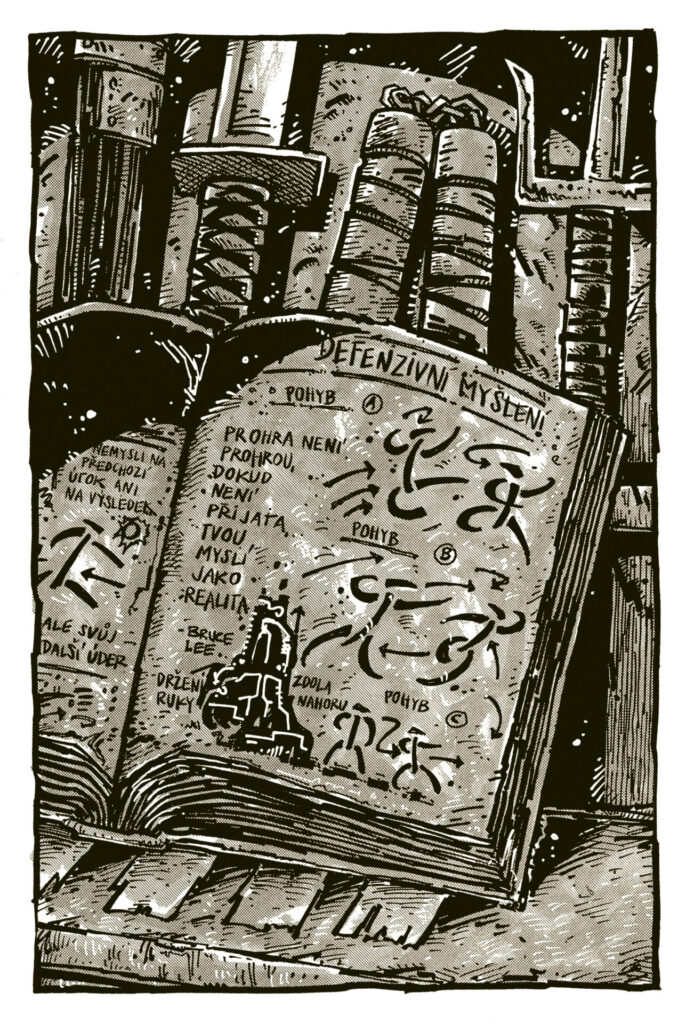 NEMYSLI NA
PŘEDCHOZÍ
ÚTOK ANI
NA VÝSLEDEK
ALE SVŮJ
DALŠÍ ÚDER
DEFENZIVNÍ MYŠLENÍ
POHYB A
PROHRA NENÍ
PROHROU,
DOKUD
NENÍ
PŘIJATA
TVOU
MYSLÍ
JAKO
REALITA
BRUCE
LEE
POHYB
B
DRŽENÍ
RUKY
ZDOLA
NAHORU
POHYB
C